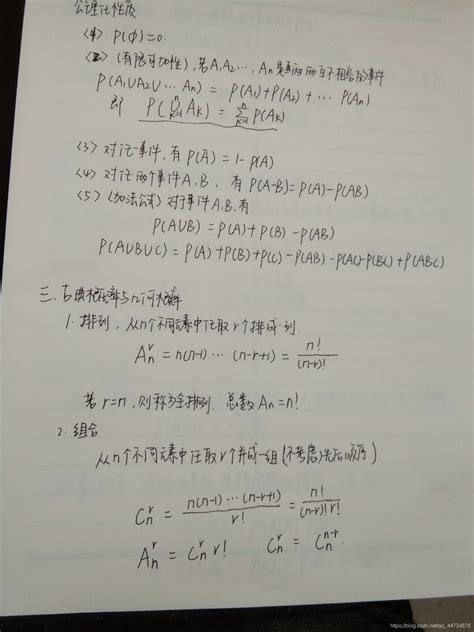 公理化性质
<1> P(∅)=0.
<2> (有限可加性), 若A₁A₂…, Aₙ是两两互不相容的事件
P(A₁∪A₂∪…Aₙ) = P(A₁)+P(A₂)+…P(Aₙ)
即 P(⋃ₖ₌₁ⁿ Aₖ) = ∑ₖ₌₁ⁿ P(Aₖ)
<3> 对任一事件, 有 P(Ā)=1-P(A)
<4> 对任两个事件A,B, 有 P(A-B)=P(A)-P(AB)
<5> (加法公式) 对于事件A,B,有
P(A∪B)=P(A)+P(B)-P(AB)
P(A∪B∪C)=P(A)+P(B)+P(C)-P(AB)-P(AC)-P(BC)+P(ABC)
三. 古典概率与几何概率
1. 排列, 从n个不同元素中任取r个排成一列.
Aₙʳ = n(n-1)…(n-r+1) = n!/(n-r)!
若r=n, 则称为全排列. 总数Aₙ=n!
2. 组合
从n个不同元素中任取r个并成一组(不考虑先后顺序)
Cₙʳ = n(n-1)…(n-r+1)/r! = n!/(n-r)!r!
Aₙʳ = Cₙʳ r! Cₙʳ = Cₙⁿ⁻ʳ.
https://blog.csdn.net/qq_44734876